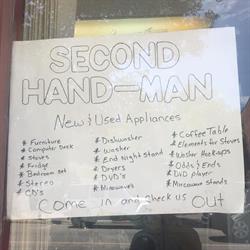 SECOND
HAND-MAN
New & Used Appliances
* Furniture
* Computer Desk
* Stoves
* Fridge
* Bedroom Set
* Stereo
* CD's
* Dishwasher
* Washer
* End Night Stand
* Dryers
* DVD's
* Microwaves
* Coffee Table
* Elements for Stoves
* Washer Hook-ups
* Odds & Ends
* DVD player
* Microwave Stands
Come in and Check us Out